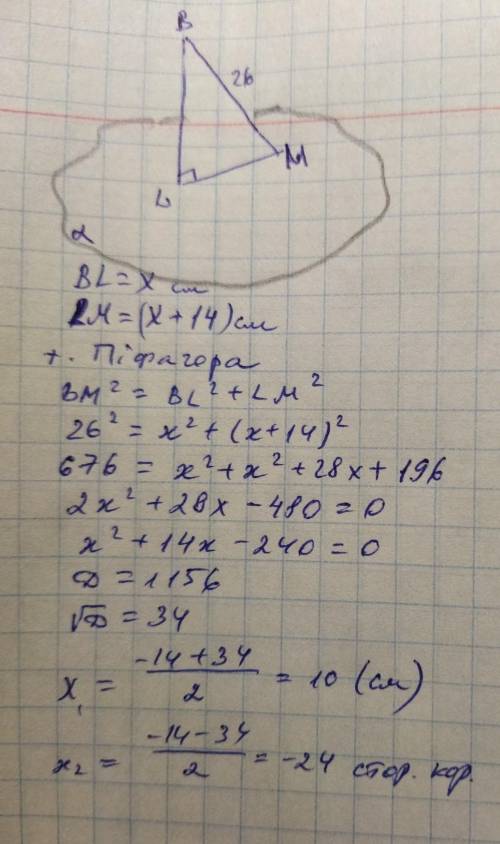 B
26
M
L
α
BL = x см
LM = (x + 14) см
т. Піфагора
BM² = BL² + LM²
26² = x² + (x + 14)²
676 = x² + x² + 28x + 196
2x² + 28x - 480 = 0
x² + 14x - 240 = 0
D = 1156
√D = 34
x₁ = (-14 + 34)/2 = 10 (см)
x₂ = (-14 - 34)/2 = -24 стор. кор.